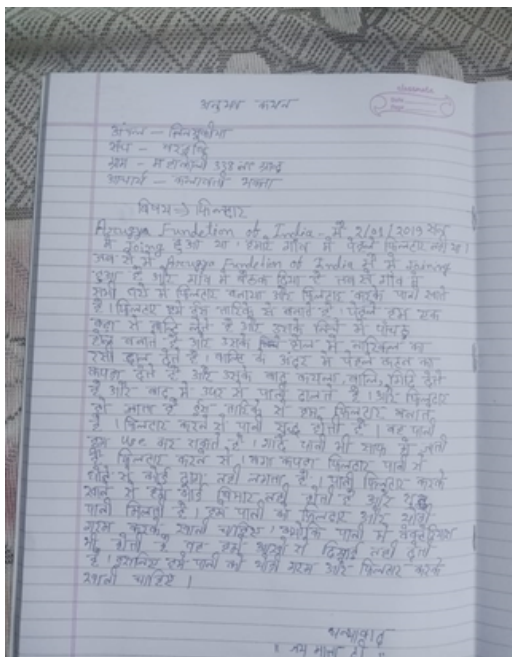 अनुभव कथन
classmate
Date
Page
अंचल –
संच –
ग्राम – 338 न०
आचार्य – कलावती
विषय ⇒ फिलटार
Arrugya Fundetion of India – में 2/01/2019
में Joing हुआ था। हमारे गाँव में पेहले फिलटार नही था।
जब से में Arrugya Fundetion of India में में Joining
हुआ है और गाँव में बैठक दिया है तब से गाँव में
सभी घरो में फिलटार बनाया और फिलटार करके पानी खाते
है। फिलटार हम इस तारिके से बनाते है। पेहले हम एक
लेते है और उसके निचे में
होल बनाते है और उसके होल में नारियल का
रसी डाल देते है। के अंदर में पेहले कटन का
कपड़ा देते है और उसके बाद कयला, बालि, देते
है और बाद में उपर से पानी डालते है। और फिलटार
हो जाता है इस तारिके से हम फिलटार बनाते
है। फिलटार करने से पानी शुद्ध होती है। वह पानी
हम use कर सकते है। पानी भी साफ हो जाती
है फिलटार करने से। कपड़ा फिलटार पानी से
धोने से कोई दाग नही लगता है। पानी फिलटार करके
खाने से हमे कोई बिमार नही होती है और शुद्ध
पानी मिलती है। हमे पानी को फिलटार और
गरम करके खानी चाहिए। क्योकि पानी में
भी होती है वह हमे आखो से दिखाई नही देती
है। इसलिए हमे पानी को गरम और फिलटार करके
खानी चाहिए।
धन्यवाद
" जय माता दी "